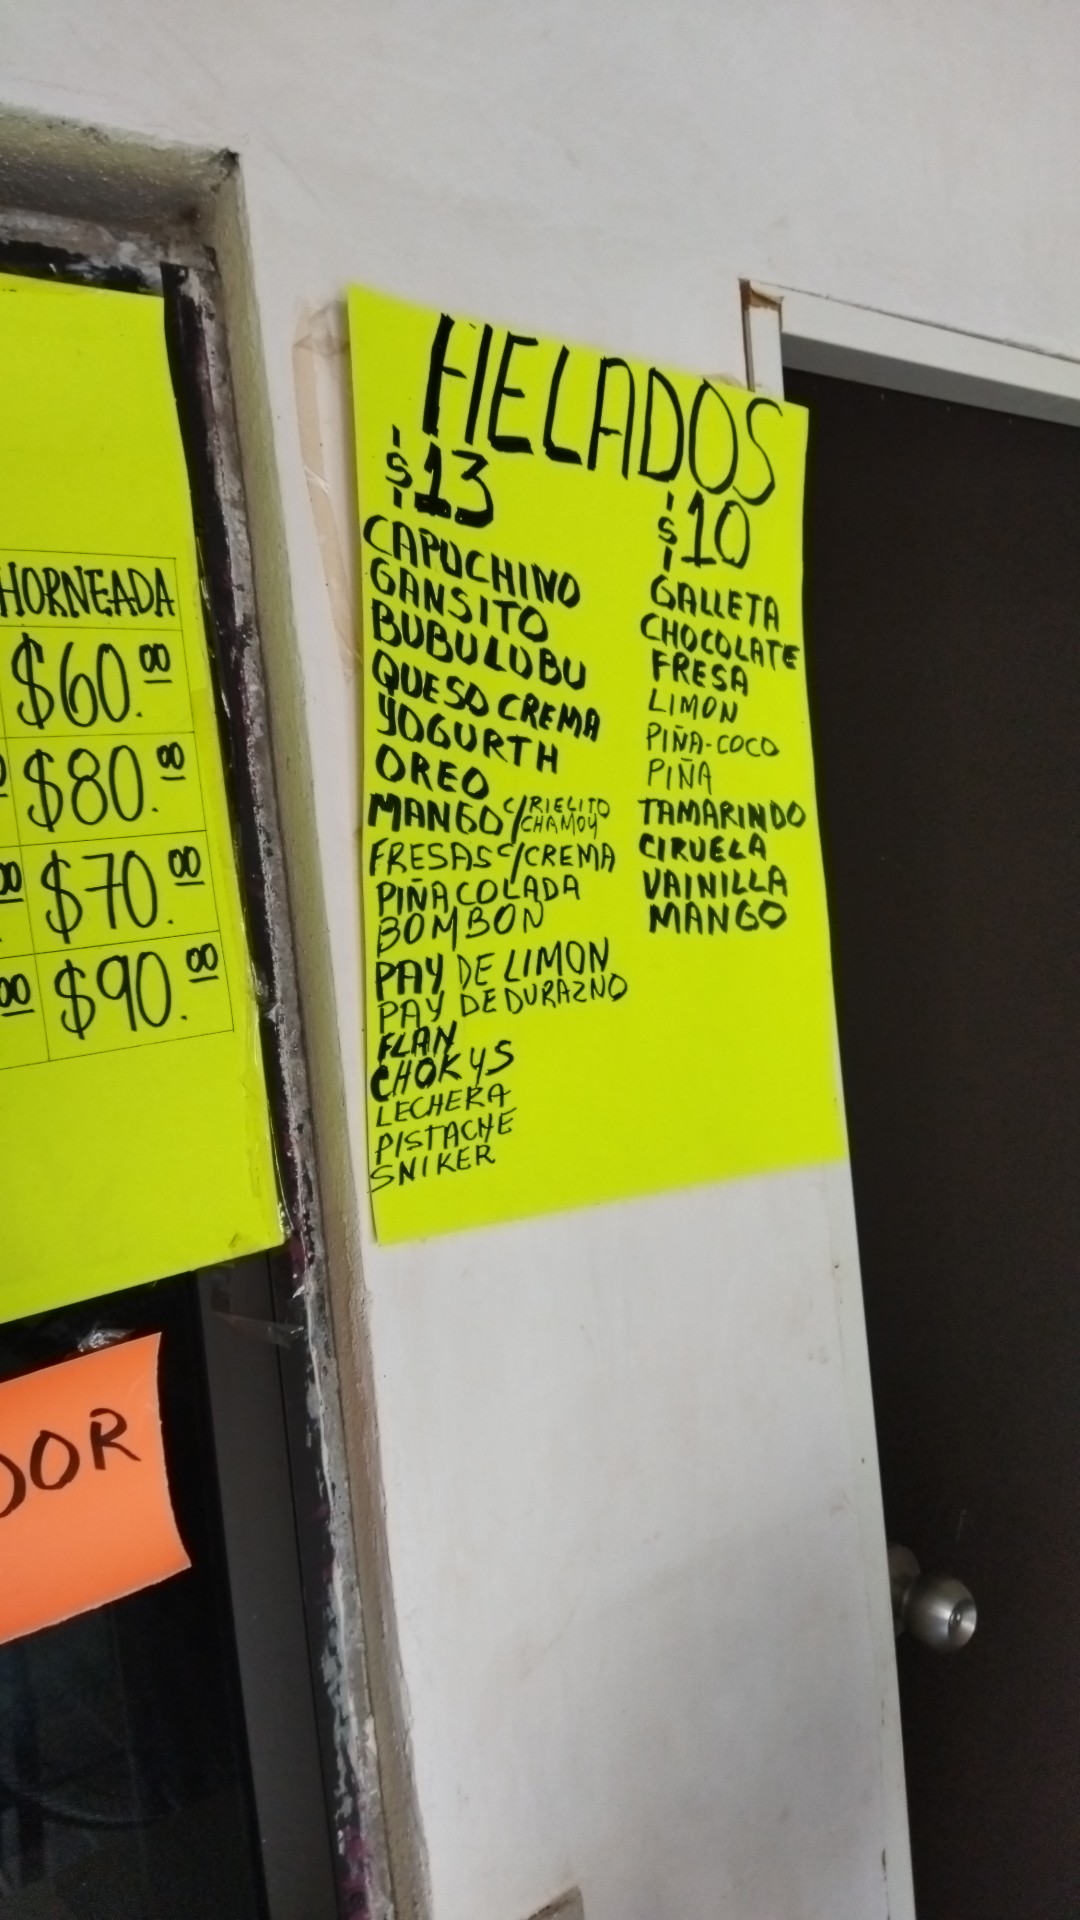 HORNEADA
$60.00
$80.00
00 $70.00
00 $90.00
HELADOS
$13
CAPUCHINO
GANSITO
BUBULUBU
QUESO CREMA
YOGURTH
OREO
MANGO C/RIELITO
CHAMOY
FRESAS C/CREMA
PIÑA COLADA
BOMBON
PAY DE LIMON
PAY DE DURAZNO
FLAN
CHOKYS
LECHERA
PISTACHE
SNIKER
$10
GALLETA
CHOCOLATE
FRESA
LIMON
PIÑA-COCO
PIÑA
TAMARINDO
CIRUELA
VAINILLA
MANGO
DOR